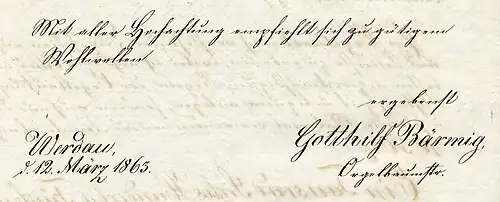 Mit aller Hochachtung empfiehlt sich zu gütigem
Wohlwollen
ergebenst
Gotthilf Bärmig,
Orgelbaumstr.
Werdau,
d. 12. März 1863.